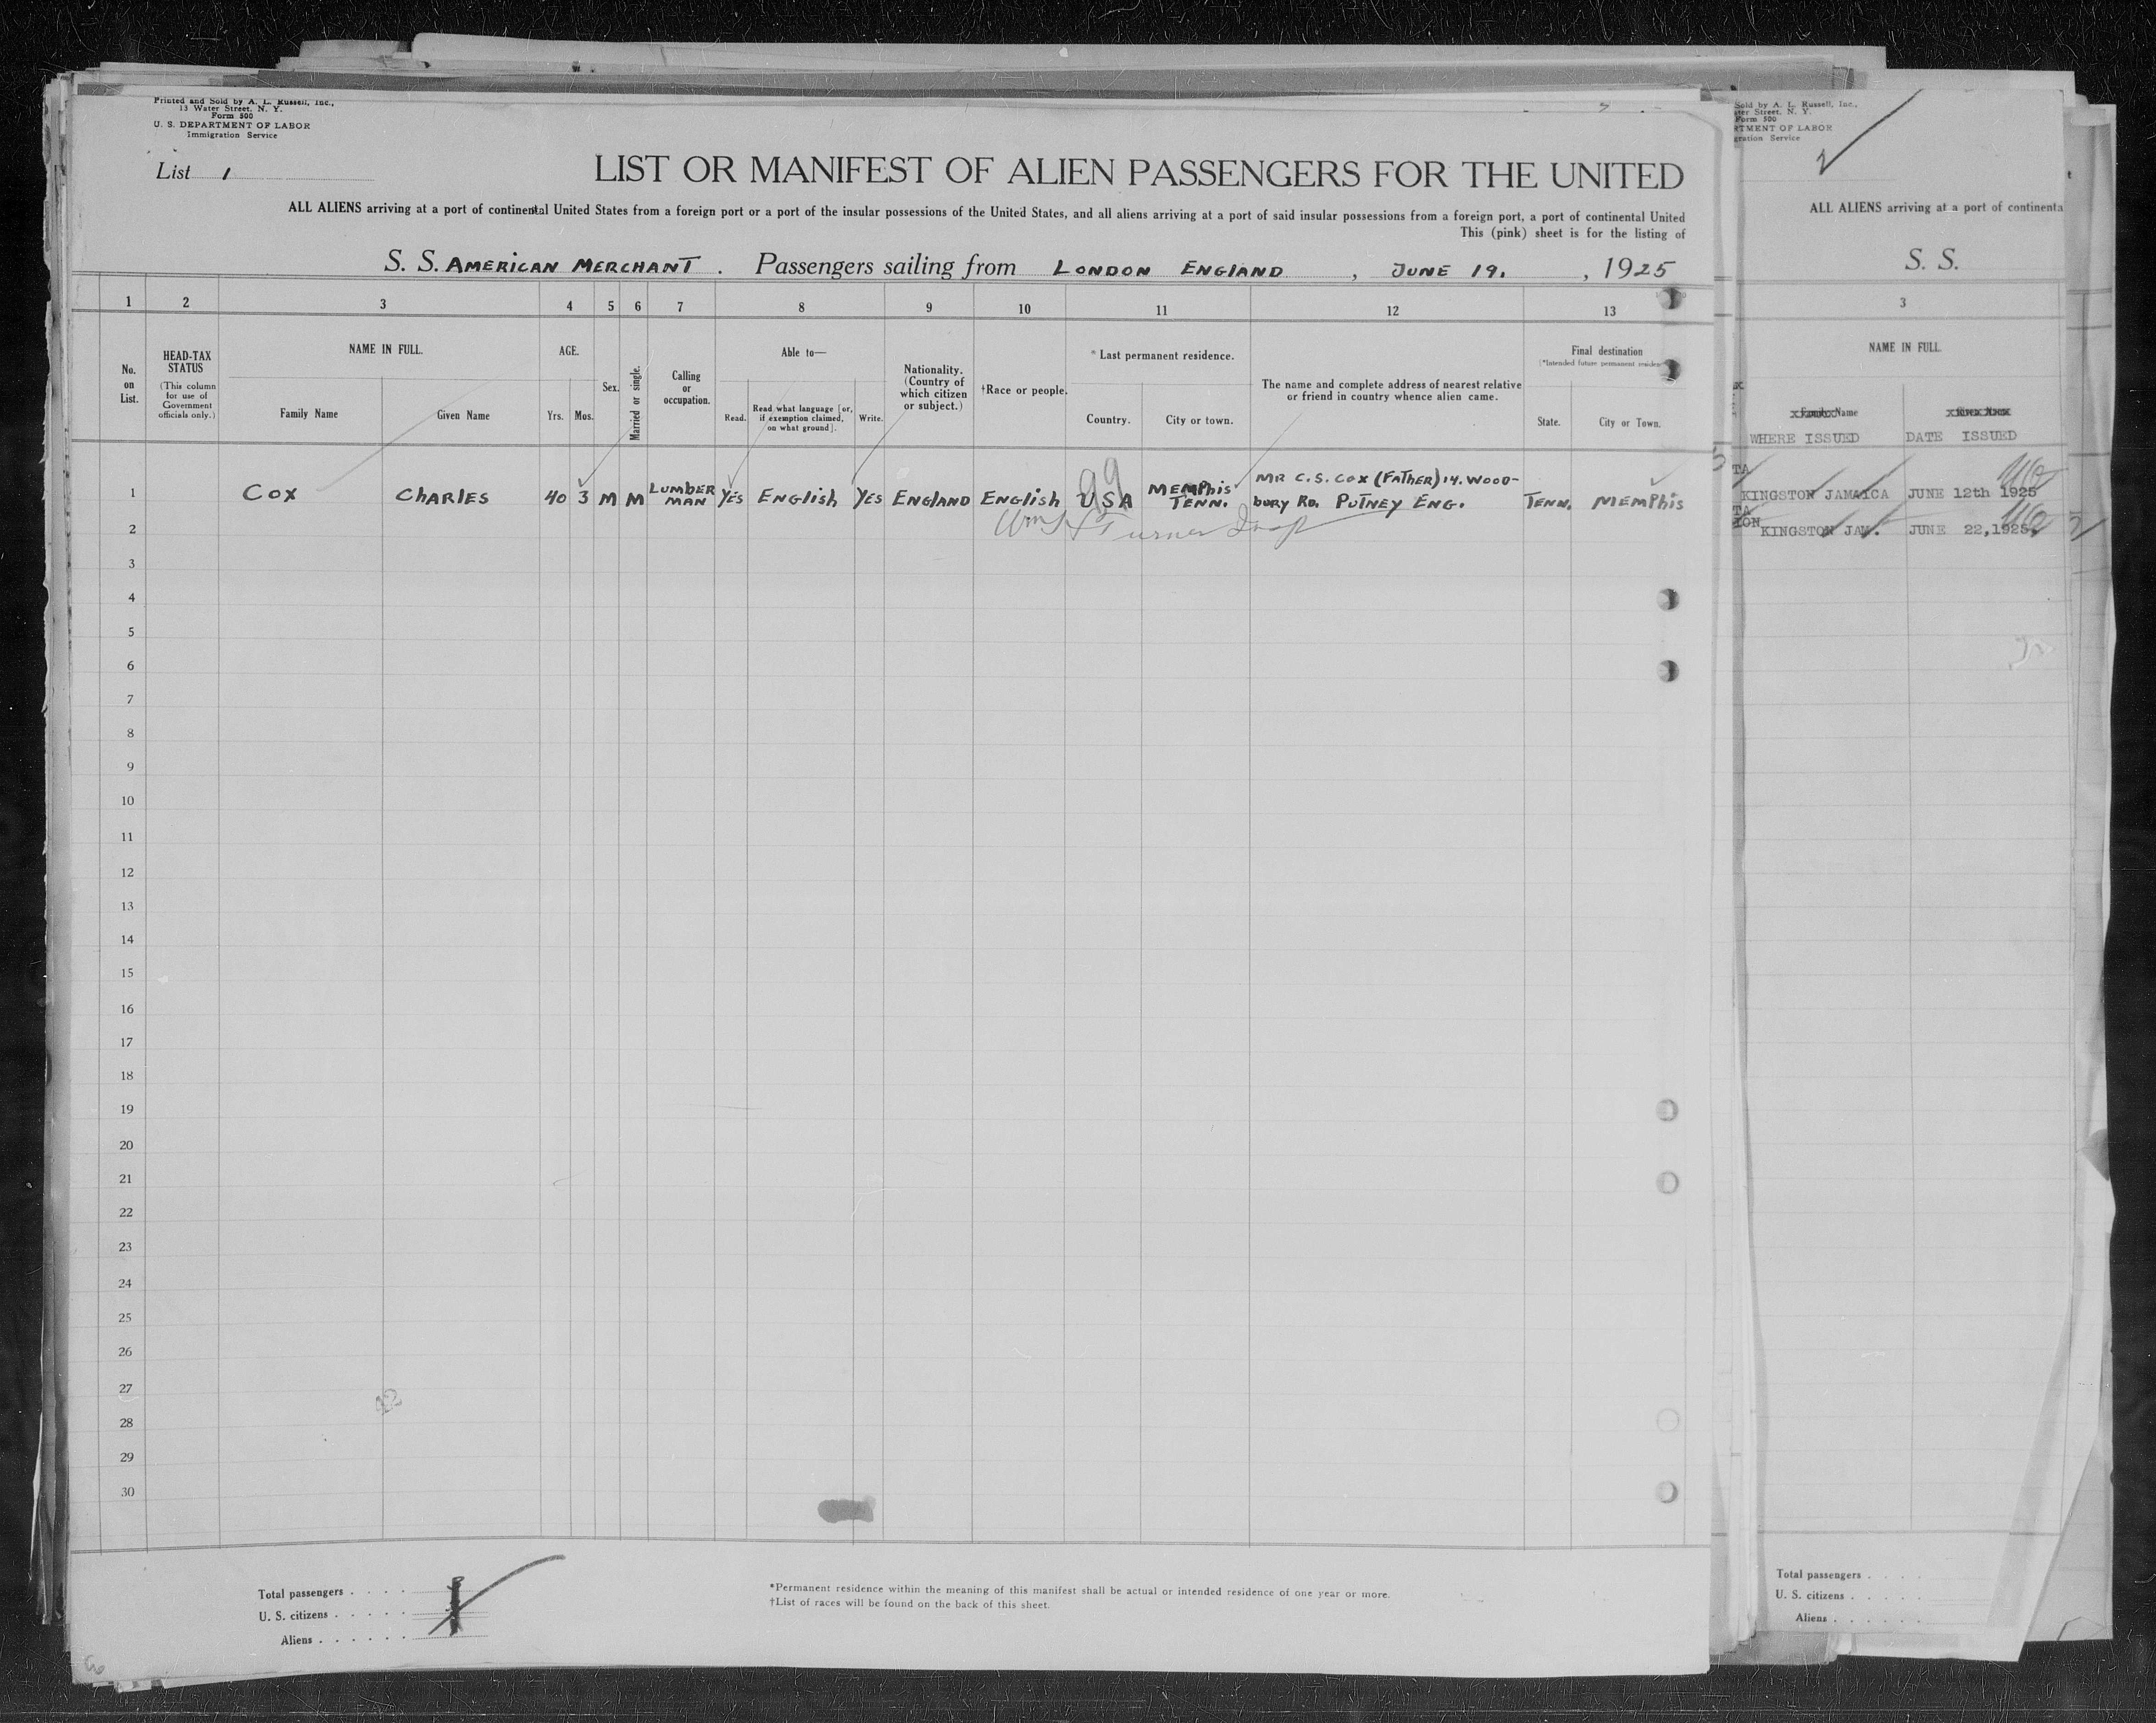 Printed and Sold by A. L. Russell, Inc.,
13 Water Street, N. Y.
Form 500
U. S. DEPARTMENT OF LABOR
Immigration Service
List 1
LIST OR MANIFEST OF ALIEN PASSENGERS FOR THE UNITED
ALL ALIENS arriving at a port of continental United States from a foreign port or a port of the insular possessions of the United States, and all aliens arriving at a port of said insular possessions from a foreign port, a port of continental United
This (pink) sheet is for the listing of
S. S. AMERICAN MERCHANT . Passengers sailing from LONDON ENGLAND , JUNE 19. , 1925
1 2 3 4 5 6 7 8 9 10 11 12 13
No. on List.
HEAD-TAX STATUS
(This column for use of Government officials only.)
NAME IN FULL.
Family Name Given Name
AGE.
Yrs. Mos.
Sex.
Married or single.
Calling or occupation.
Able to—
Read. Read what language [or, if exemption claimed, on what ground]. Write.
Nationality. (Country of which citizen or subject.)
†Race or people.
* Last permanent residence.
Country. City or town.
The name and complete address of nearest relative or friend in country whence alien came.
Final destination
(*Intended future permanent residen
State. City or Town.
1 COX CHARLES 40 3 M M LUMBER MAN YES ENGLISH YES ENGLAND ENGLISH USA MEMPHIS TENN. MR C.S. COX (FATHER) 14. WOOD-
BURY RD. PUTNEY ENG. TENN. MEMPHIS
99
2 Wm H Turner Insp
3
4
5
6
7
8
9
10
11
12
13
14
15
16
17
18
19
20
21
22
23
24
25
26
27
28
29
30
Total passengers
U. S. citizens
Aliens
*Permanent residence within the meaning of this manifest shall be actual or intended residence of one year or more.
†List of races will be found on the back of this sheet.
Sold by A. L. Russell, Inc.,
ter Street, N. Y.
Form 500
RTMENT OF LABOR
gration Service
ALL ALIENS arriving at a port of continenta
S. S.
3
NAME IN FULL.
Family Name Given Name
WHERE ISSUED DATE ISSUED
TA
KINGSTON JAMAICA JUNE 12th 1925
TA
ION KINGSTON JAM. JUNE 22,1925.
Total passengers
U. S. citizens
Aliens